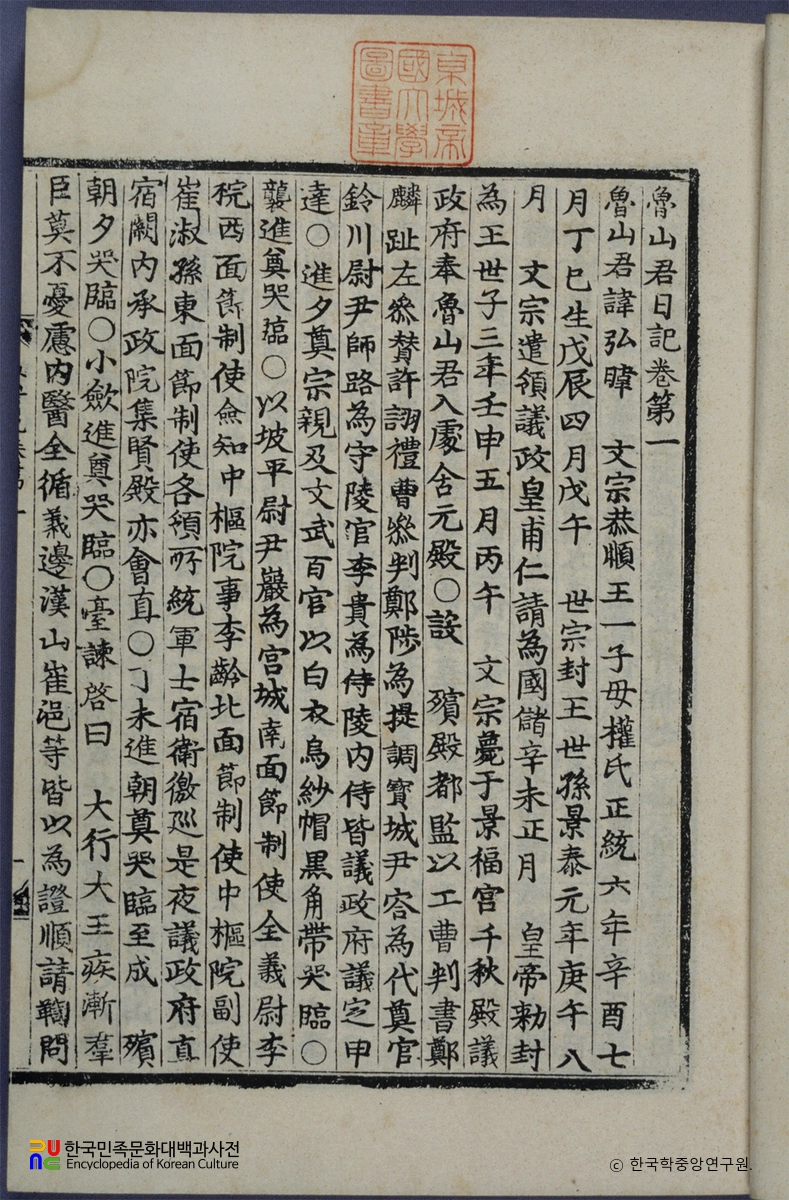 東城帝
國大學
圖書章
魯山君日記卷第一
魯山君諱弘暐 文宗恭順王一子母權氏正統六年辛酉七
月丁巳生戊辰四月戊午 世宗封王世孫景泰元年庚午八
月 文宗遣領議政皇甫仁請為國儲辛未正月 皇帝勑封
為王世子三年壬申五月丙午 文宗薨于景福宮千秋殿議
政府奉魯山君入處舍元殿○設 殯殿都監以工曹判書鄭
麟趾左參贊許詡禮曹參判鄭陟為提調寶城尹容為代奠官
鈴川尉尹師路為守陵官李貴為侍陵內侍皆議政府議定申
達○進夕奠宗親及文武百官以白衣烏紗帽黑角帶哭臨○
襲進奠哭臨○以坡平尉尹巖為宮城南面節制使全義尉李
院西面節制使僉知中樞院事李齡北面節制使中樞院副使
崔淑孫東面節制使各領所統軍士宿衛徼巡是夜議政府直
宿闕內承政院集賢殿亦會直○丁未進朝奠哭臨至成 殯
朝夕哭臨○小歛進奠哭臨○臺諫啓曰 大行大王疾漸羣
臣莫不憂慮內醫全循義邊漢山崔浥等皆以為證順請鞫問
한국민족문화대백과사전
Encyclopedia of Korean Culture
ⓒ 한국학중앙연구원.